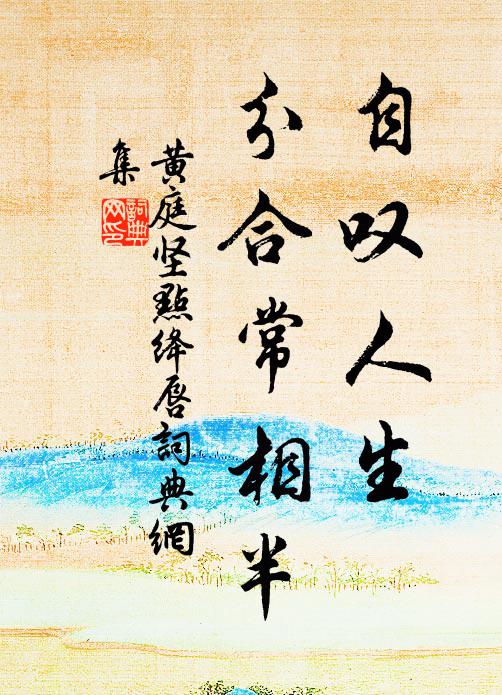 自叹人生
分合常相半
黄庭坚點绛唇詞典網
集
詞典
网印